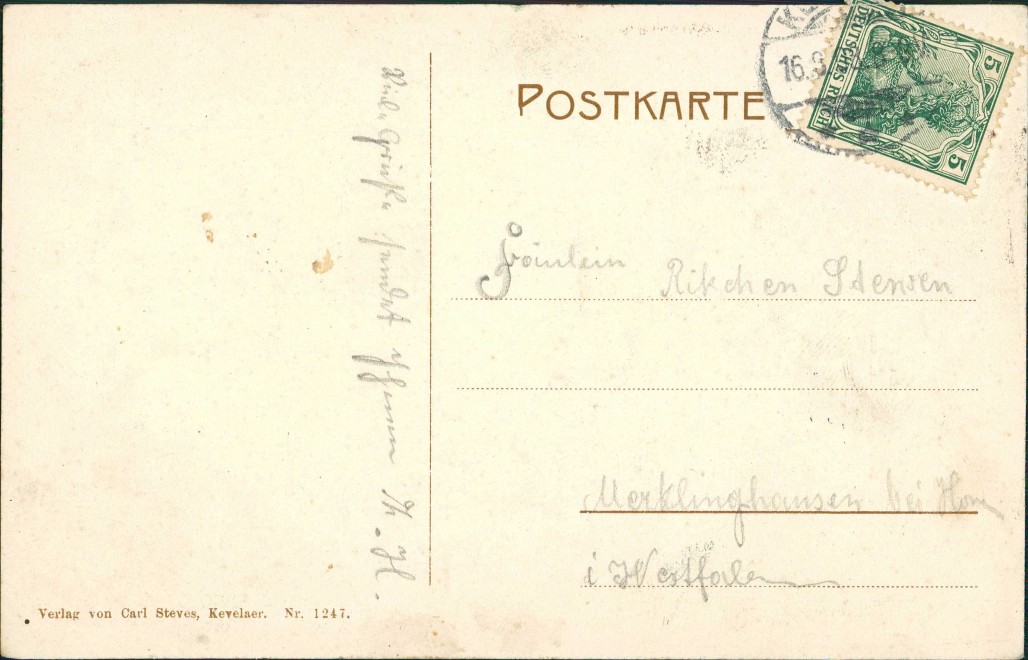 POSTKARTE
DEUTSCHES REICH
5
5
16.9
Viele Grüße sendet Ihnen Th. H.
Fräulein Rikchen Stewen
Merklinghausen bei
i Westfalen
Verlag von Carl Steves, Kevelaer. Nr. 1247.